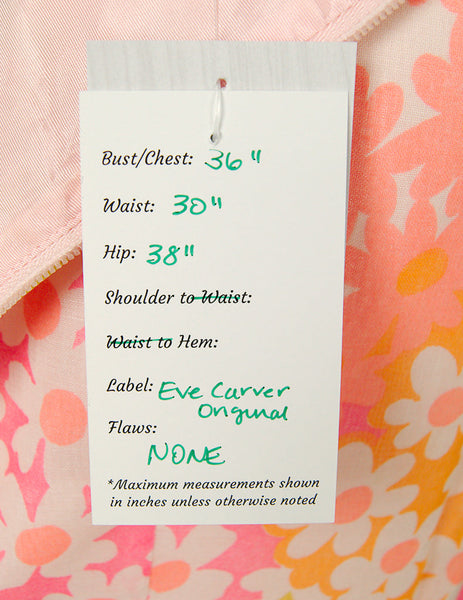 Bust/Chest: 36"
Waist: 30"
Hip: 38"
Shoulder to Waist:
Waist to Hem:
Label: Eve Carver
Original
Flaws:
NONE
*Maximum measurements shown
in inches unless otherwise noted